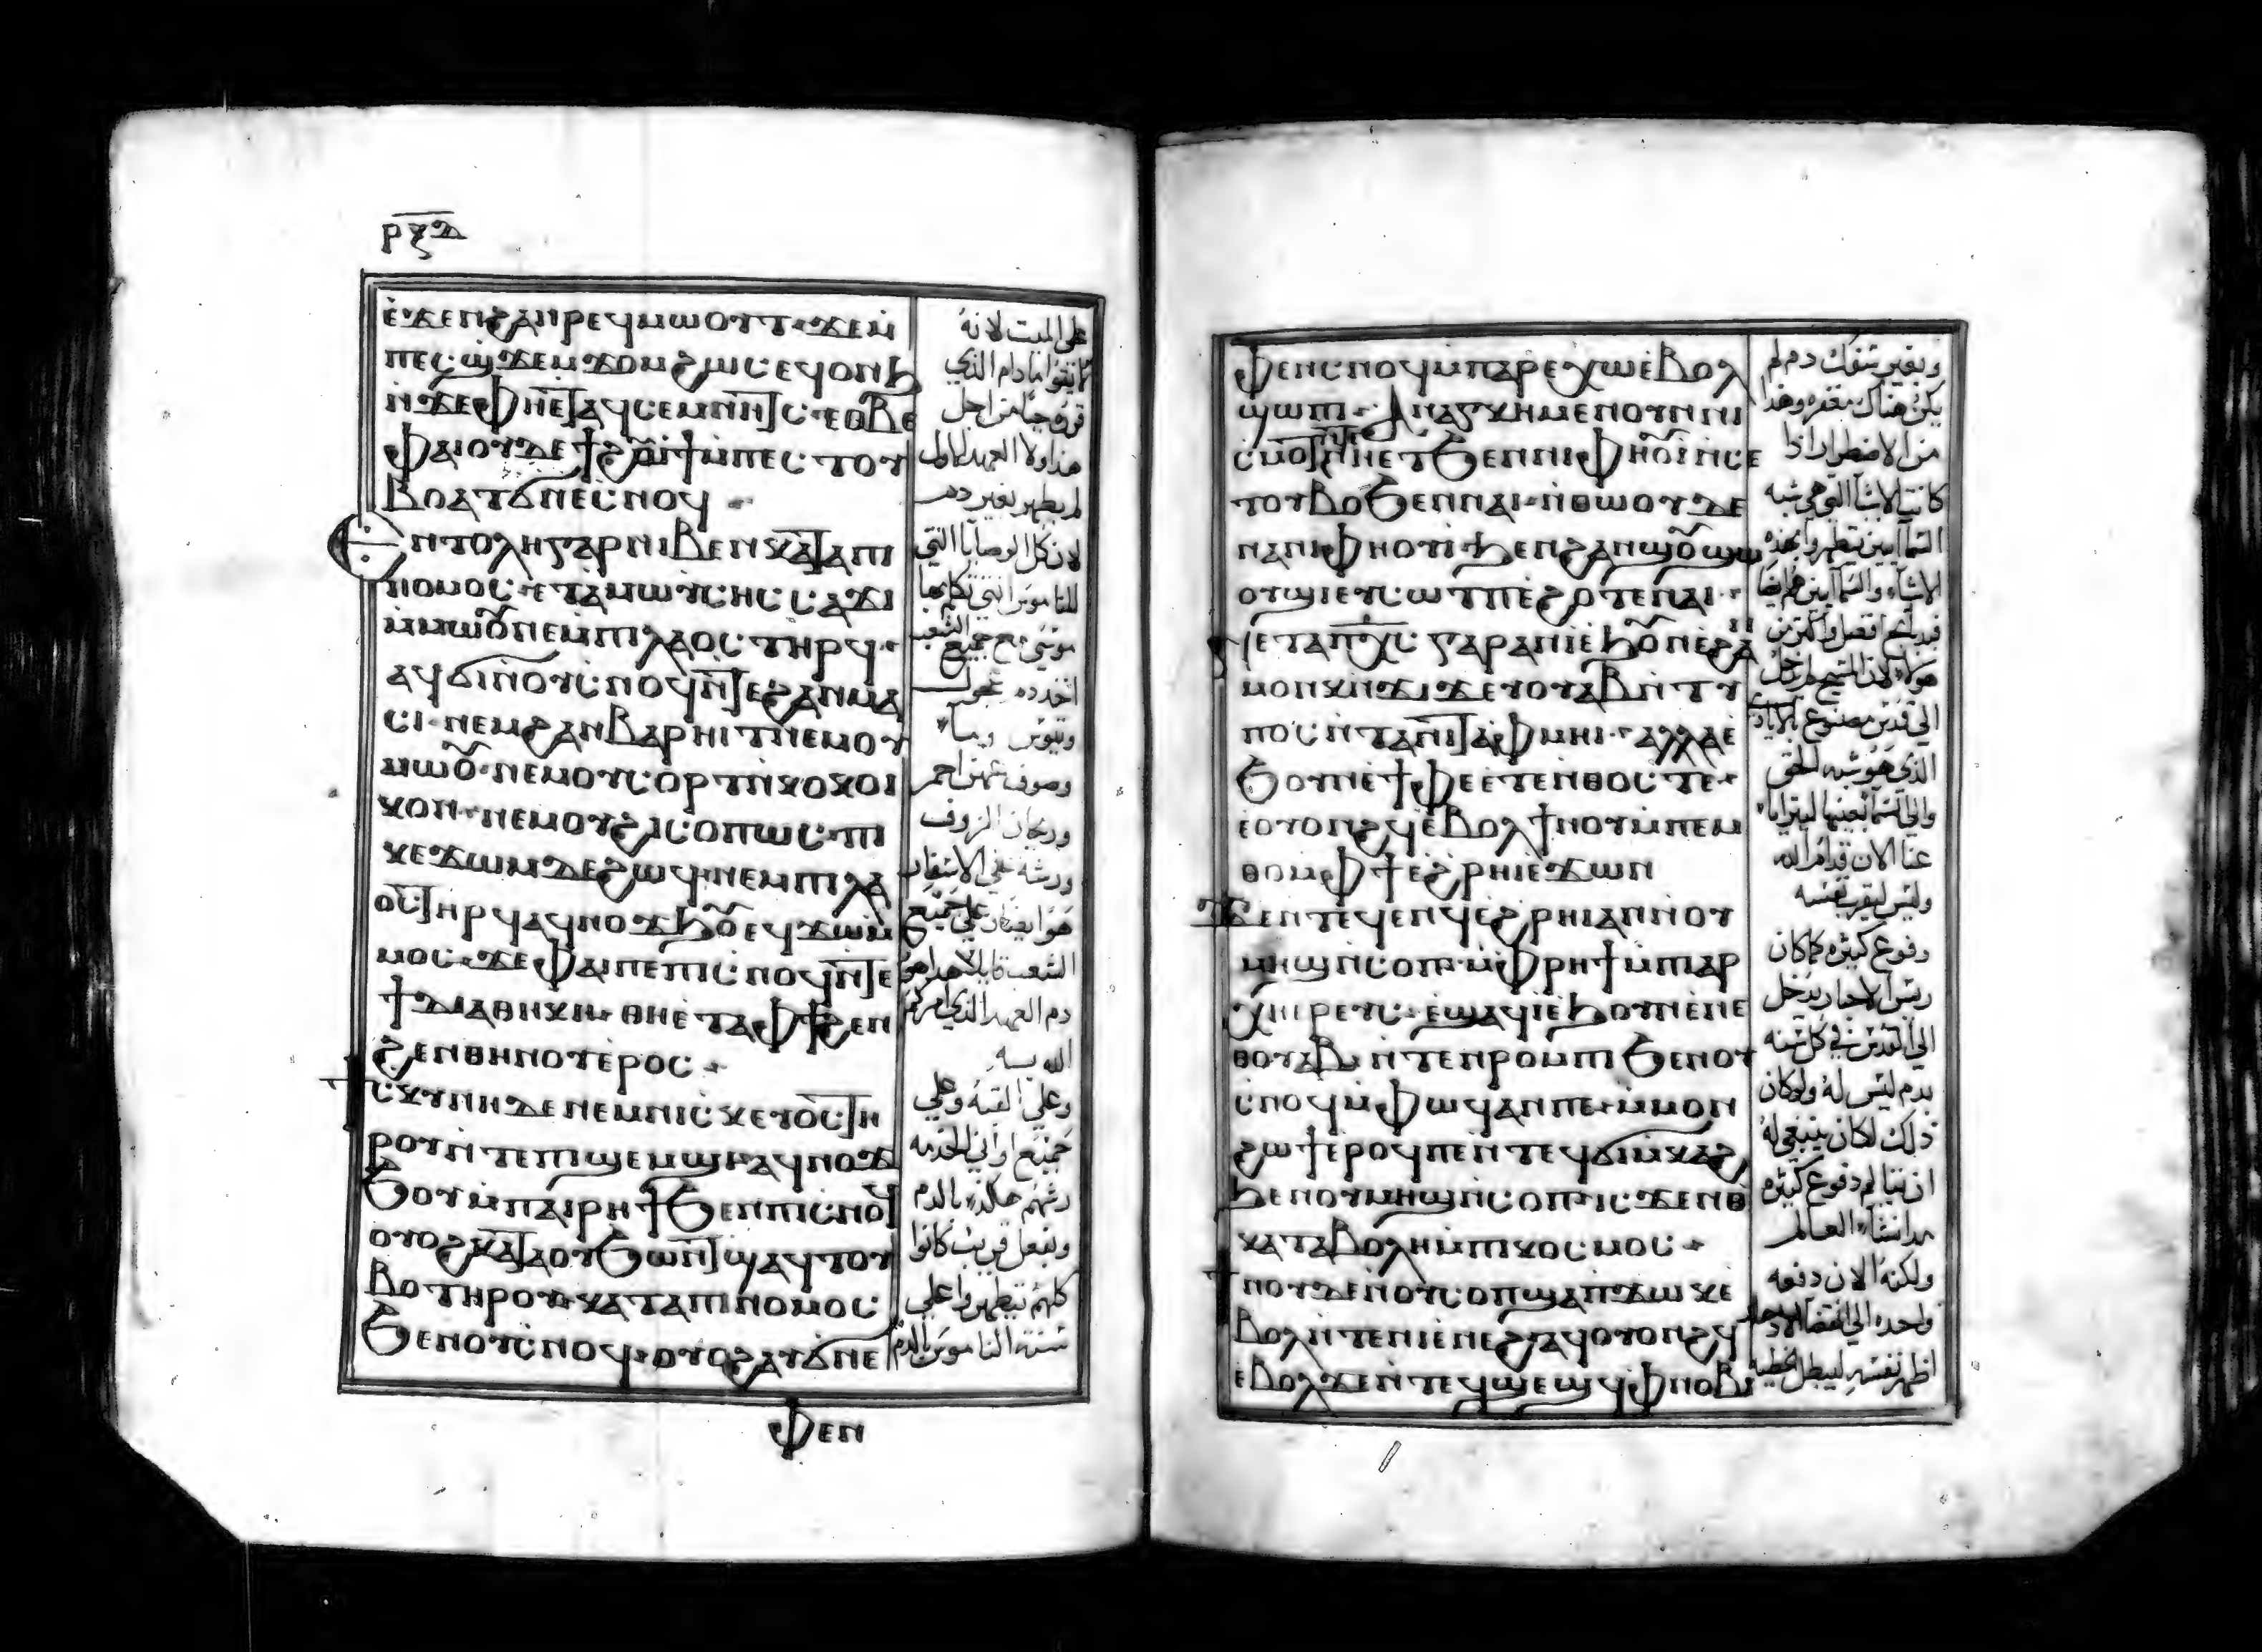 ⲣⲝⲇ
ⲉϫⲉⲛϩⲁⲛⲣⲉϥⲙⲱⲟⲩⲧ ϫⲉⲙ
ⲡⲉⲥϣϫⲉⲙϫⲟⲙ ϩⲱⲥ ⲉϥⲟⲛϧ
ⲛϫⲉⲫⲏⲉⲧⲁϥⲥⲉⲙⲛⲏⲧⲥ ⲉⲑⲃⲉ
ⲫⲁⲓ ⲟⲩⲇⲉ ϯϩⲟⲩⲓϯ ⲙⲡⲉⲥⲧⲟⲩ
ⲃⲟ ⲁⲧϭⲛⲉⲥⲛⲟϥ
ⲉⲛⲧⲟⲗⲏ ⲅⲁⲣ ⲛⲓⲃⲉⲛ ⲕⲁⲧⲁ ⲡⲓ
ⲛⲟⲙⲟⲥ ⲉⲧⲁⲙⲱⲩⲥⲏⲥ ⲥⲁϫⲓ
ⲙⲙⲱⲟⲩ ⲛⲉⲙ ⲡⲓⲗⲁⲟⲥ ⲧⲏⲣϥ
ⲁϥϭⲓ ⲛⲟⲩⲥⲛⲟϥ ⲛⲧⲉϩⲁⲛⲙⲁ
ⲥⲓ ⲛⲉⲙ ϩⲁⲛⲃⲁⲣⲏⲓⲧ ⲛⲉⲙ ⲟⲩ
ⲙⲱⲟⲩ ⲛⲉⲙ ⲟⲩⲥⲟⲣⲧ ⲛⲕⲟⲕⲟⲓ
ⲕⲟⲛ ⲛⲉⲙ ⲟⲩϩⲓⲥⲟⲡⲱⲥ ⲡⲓ
ⲕⲉϫⲱⲙ ⲇⲉ ϩⲱϥ ⲛⲉⲙ ⲡⲓⲗⲁ
ⲟⲥ ⲧⲏⲣϥ ⲁϥⲛⲟϫϧⲟⲩ ⲉϥϫⲱⲙ
ⲙⲟⲥ ϫⲉ ⲫⲁⲓ ⲡⲉ ⲡⲓⲥⲛⲟϥ ⲛⲧⲉ
ϯⲇⲓⲁⲑⲏⲕⲏ ⲑⲏⲉⲧⲁⲫϯ ϩⲉⲛ
ϩⲉⲛⲑⲏⲛⲟⲩ ⲉⲣⲟⲥ
ⲥⲕⲩⲛⲏ ⲇⲉ ⲛⲉⲙ ⲛⲓⲥⲕⲉⲩⲟⲥ ⲧⲏ
ⲣⲟⲩ ⲛⲧⲉⲡⲓϣⲉⲙϣⲓ ⲁϥⲛⲟϫ
ϧⲟⲩ ⲙⲡⲁⲓⲣⲏϯ ϧⲉⲛ ⲡⲓⲥⲛⲟϥ
ⲟⲩⲟϩ ⲕⲁⲧⲁ ⲟⲩϧⲱⲛⲧ ϣⲁϥⲧⲟⲩ
ⲃⲟ ⲧⲏⲣⲟⲩ ⲕⲁⲧⲁ ⲡⲓⲛⲟⲙⲟⲥ
ϧⲉⲛ ⲟⲩⲥⲛⲟϥ ⲟⲩⲟϩ ⲁⲧϭⲛⲉ
ⲫⲉⲛ
على الميت لانه
لا تقوا ما دام الذي
قررها حيا من اجل
هذا ولا العهد الاول
لم يطهر بغير دم
لان كل الوصايا التي
للناموس التي تكلم بها
موسى مع جميع الشعب
اخذ دم عجول
وتيوس وماء
وصوف عهن احمر
وريحان الزوف
ورشه على الاسفار
هو ايضا وعلى جميع
الشعب قايلا هذا هو
دم العهد الذي امركم
الله به
وعلى القبه وعلى
جميع اواني الخدمه
رشهم هكذا بالدم
وبفعل قريب كانوا
كلهم يتطهروا على
سنة الناموس بالدم
ⲫⲉⲛⲥⲛⲟϥ ⲙⲡⲁⲣⲉⲭⲱ ⲉⲃⲟⲗ
ϣⲱⲡⲓ ⲁⲛⲁⲅⲕⲏ ⲙⲉⲛ ⲟⲩⲛ ⲛⲓ
ⲥⲙⲟⲧ ⲛⲛⲏⲉⲧϧⲉⲛ ⲛⲓⲫⲏⲟⲩⲓ ⲛⲥⲉ
ⲧⲟⲩⲃⲟ ϧⲉⲛ ⲛⲁⲓ ⲛⲑⲱⲟⲩ ⲇⲉ
ⲛⲁⲛⲓⲫⲏⲟⲩⲓ ϧⲉⲛ ϩⲁⲛϣⲟⲩϣⲱ
ⲟⲩϣⲓ ⲉⲩⲥⲱⲧⲡ ⲉϩⲟⲧⲉ ⲛⲁⲓ
ⲉⲧⲁⲡⲭⲥ ⲅⲁⲣ ⲁⲛ ⲓ ⲉϧⲟⲩⲛ ⲉϩⲁ
ⲙⲟⲩⲛⲕⲛϫⲓϫ ⲉⲩⲟⲩⲁⲃ ⲛⲧⲩ
ⲡⲟⲥ ⲛⲧⲁⲛⲓⲧⲁⲫⲙⲏⲓ ⲁⲗⲗⲁ ⲉ
ϧⲟⲩⲛ ⲉⲧⲫⲉ ⲉⲧⲉⲛⲑⲟⲥ ⲧⲉ
ⲉⲟⲩⲟⲛϩϥ ⲉⲃⲟⲗ ϯⲛⲟⲩ ⲙⲡⲉⲙ
ⲑⲟ ⲙⲫϯ ⲉϩⲣⲏⲓ ⲉϫⲱⲛ
ϫⲉ ⲛⲧⲉϥⲉⲛϥ ⲉϩⲣⲏⲓ ⲁⲛ ⲛⲟⲩ
ⲙⲏϣ ⲛⲥⲟⲡ ⲙⲫⲣⲏϯ ⲙⲡⲓⲁⲣ
ⲭⲏⲉⲣⲉⲩⲥ ⲉϣⲁϥⲓ ⲉϧⲟⲩⲛ ⲉⲛⲉ
ⲑⲟⲩⲁⲃ ⲛⲧⲉⲛⲣⲟⲙⲡⲓ ϧⲉⲛ ⲟⲩ
ⲥⲛⲟϥ ⲙⲫⲱϥ ⲁⲛ ⲡⲉ ⲙⲙⲟⲛ
ϩⲱϯ ⲉⲣⲟϥ ⲡⲉ ⲛⲧⲉϥϭⲓⲙⲕⲁϩ
ϧⲉⲛ ⲟⲩⲙⲏϣ ⲛⲥⲟⲡ ⲓⲥϫⲉⲛ ⲑ
ⲕⲁⲧⲁⲃⲟⲗⲏ ⲙⲡⲓⲕⲟⲥⲙⲟⲥ
ϯⲛⲟⲩ ⲇⲉ ⲛⲟⲩⲥⲟⲡ ϣⲁⲡϫⲱⲕ ⲉ
ⲃⲟⲗ ⲛⲧⲉⲛⲓⲉⲛⲉϩ ⲁϥⲟⲩⲟⲛϩϥ
ⲉⲃⲟⲗ ϫⲉ ⲛⲧⲉϥϣⲉϣϥ ⲫⲛⲟⲃⲓ
وبغير سفك دم لم
يكن هناك مغفره وهذا
من الاضطرار اذا
كانت الاشيا التي هي شبه
السمآيين يتطهروا بهذه
الاشياء والسمآيين هم ايضا
فبدبايح افضل واكثر من
هولاء لان المسيح لم يدخل
الى قدس مصنوع بالايادي
الذي هو شبه الحق
والى السمآ بعينها ليترايا
عنا الان قدام الله
وليس ليقرب نفسه
دفوع كثيره كما كان
ريس الاحبار يدخل
الى القدس في كل سنه
بدم ليس له ولو كان
ذلك لكان ينبغي له
ان يتالم دفوع كثيره
مذ انشاء العالم
ولكنه الان دفعه
واحده الى انقضآ الاد
اظهر نفسه ليبطل الخطيه